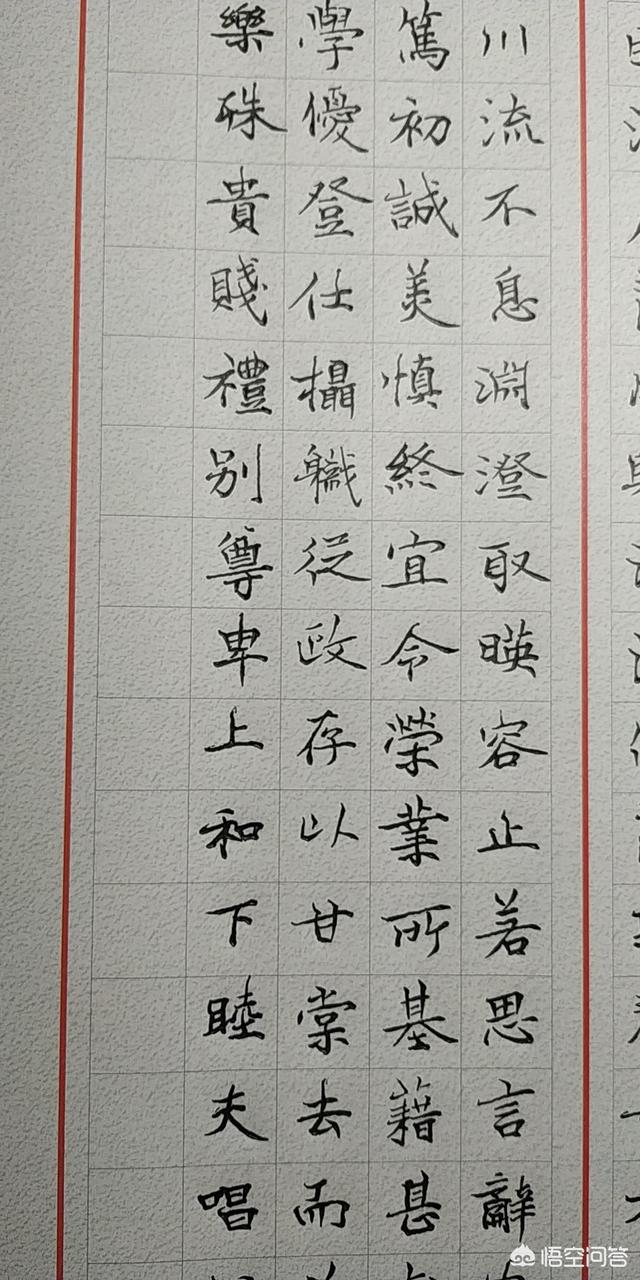 川流不息淵澄取暎容止若思言辭
篤初誠美慎終宜令榮業所基藉甚
學優登仕攝職從政存以甘棠去而
樂殊貴賤禮別尊卑上和下睦夫唱
悟空问答